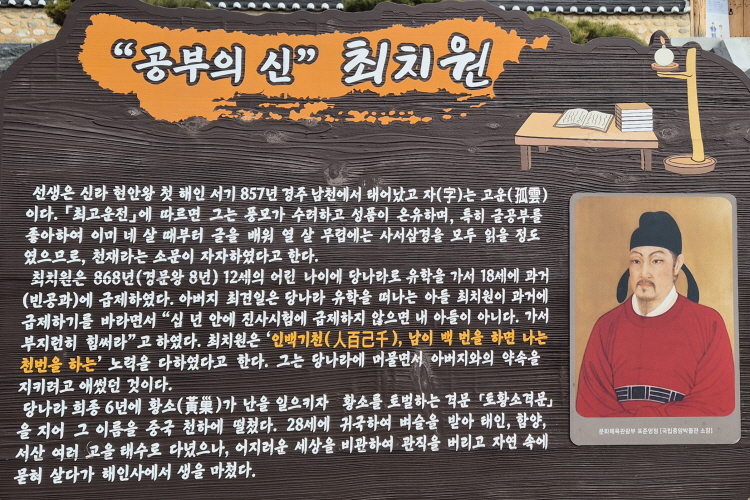 “공부의 신” 최치원
선생은 신라 헌안왕 첫 해인 서기 857년 경주 남천에서 태어났고 자(字)는 고운(孤雲)
이다. 「최고운전」에 따르면 그는 풍모가 수려하고 성품이 온유하며, 특히 글공부를
좋아하여 이미 네 살 때부터 글을 배워 열 살 무렵에는 사서삼경을 모두 읽을 정도
였으므로, 천재라는 소문이 자자하였다고 한다.
최치원은 868년(경문왕 8년) 12세의 어린 나이에 당나라로 유학을 가서 18세에 과거
(빈공과)에 급제하였다. 아버지 최견일은 당나라 유학을 떠나는 아들 최치원이 과거에
급제하기를 바라면서 “십 년 안에 진사시험에 급제하지 않으면 내 아들이 아니다. 가서
부지런히 힘써라”고 하였다. 최치원은 ‘인백기천(人百己千), 남이 백 번을 하면 나는
천번을 하는’ 노력을 다하였다고 한다. 그는 당나라에 머물면서 아버지와의 약속을
지키려고 애썼던 것이다.
당나라 희종 6년에 황소(黃巢)가 난을 일으키자 황소를 토벌하는 격문 「토황소격문」
을 지어 그 이름을 중국 천하에 떨쳤다. 28세에 귀국하여 벼슬을 받아 태인, 함양,
서산 여러 고을 태수로 다녔으나, 어지러운 세상을 비관하여 관직을 버리고 자연 속에
묻혀 살다가 해인사에서 생을 마쳤다.
문화체육관광부 표준영정 (국립중앙박물관 소장)